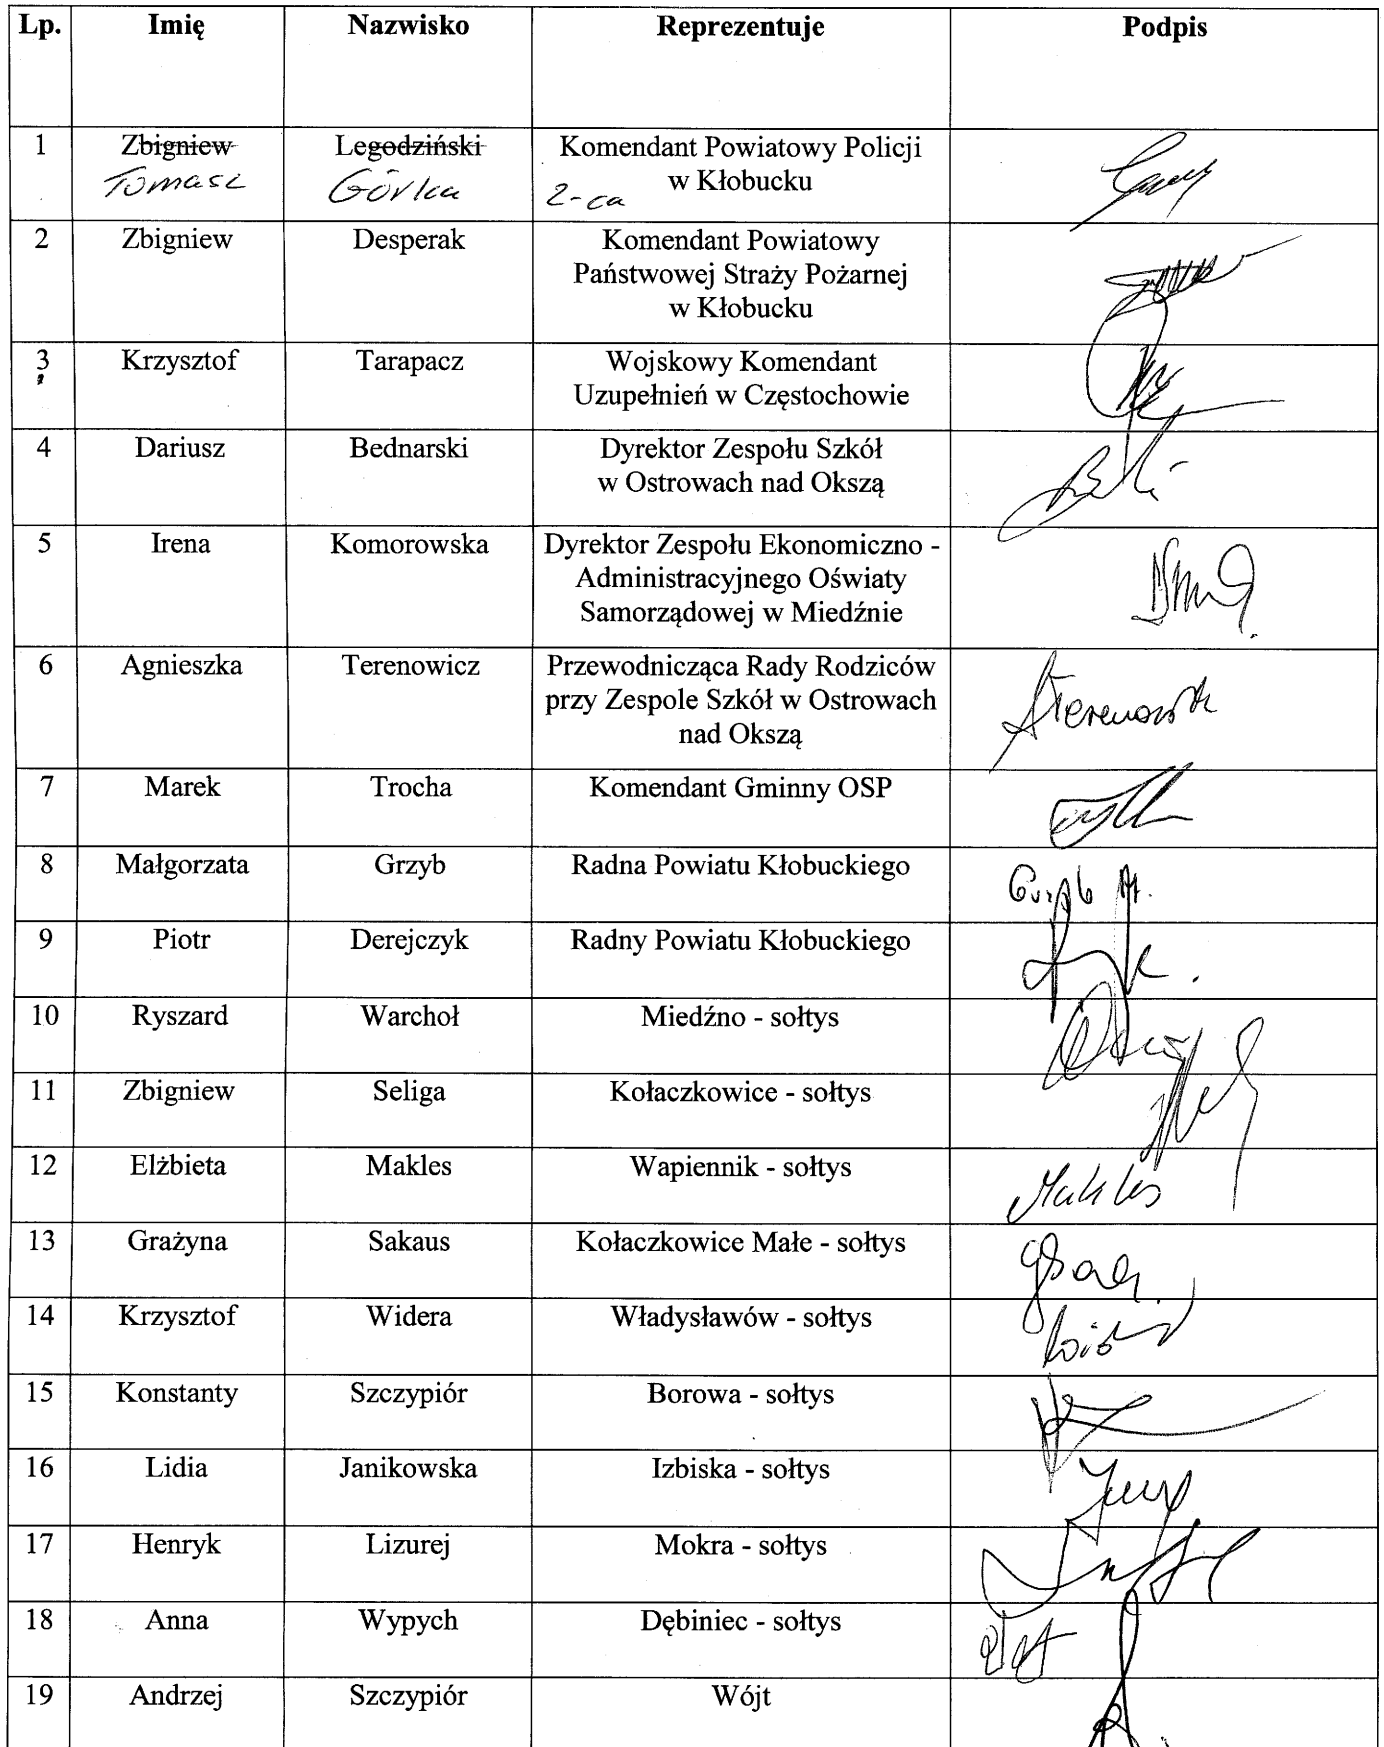 Lp. Imię Nazwisko Reprezentuje Podpis
1 Zbigniew Legodziński Komendant Powiatowy Policji
Tomasz Górka z-ca w Kłobucku
2 Zbigniew Desperak Komendant Powiatowy
Państwowej Straży Pożarnej
w Kłobucku
3 Krzysztof Tarapacz Wojskowy Komendant
Uzupełnień w Częstochowie
4 Dariusz Bednarski Dyrektor Zespołu Szkół
w Ostrowach nad Okszą
5 Irena Komorowska Dyrektor Zespołu Ekonomiczno -
Administracyjnego Oświaty
Samorządowej w Miedźnie
6 Agnieszka Terenowicz Przewodnicząca Rady Rodziców
przy Zespole Szkół w Ostrowach
nad Okszą
7 Marek Trocha Komendant Gminny OSP
8 Małgorzata Grzyb Radna Powiatu Kłobuckiego
9 Piotr Derejczyk Radny Powiatu Kłobuckiego
10 Ryszard Warchoł Miedźno - sołtys
11 Zbigniew Seliga Kołaczkowice - sołtys
12 Elżbieta Makles Wapiennik - sołtys Makles
13 Grażyna Sakaus Kołaczkowice Małe - sołtys
14 Krzysztof Widera Władysławów - sołtys
15 Konstanty Szczypiór Borowa - sołtys
16 Lidia Janikowska Izbiska - sołtys
17 Henryk Lizurej Mokra - sołtys
18 Anna Wypych Dębiniec - sołtys
19 Andrzej Szczypiór Wójt